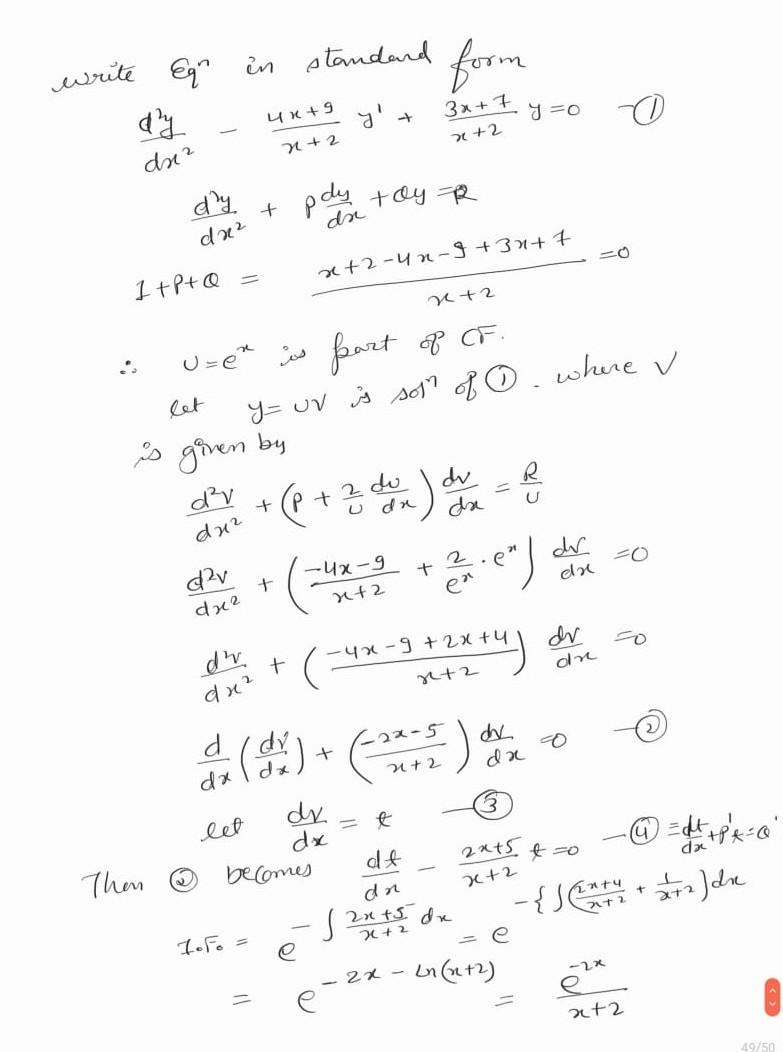 write Eqⁿ in standard form
d²y/dx² - (4x+9)/(x+2) y' + (3x+7)/(x+2) y=0 —①
d²y/dx² + P dy/dx + Qy = R
1+P+Q = (x+2-4x-9+3x+7)/(x+2) =0
∴ U=eˣ is part of CF.
let y= UV is solⁿ of ①. where V
is given by
d²V/dx² + (P + 2/U du/dx) dv/dx = R/U
d²v/dx² + ((-4x-9)/(x+2) + 2/eˣ · eˣ) dv/dx =0
d²v/dx² + ((-4x-9+2x+4)/(x+2)) dv/dx =0
d/dx (dv/dx) + ((-2x-5)/(x+2)) dv/dx =0 —②
let dv/dx = t —③
Then ② becomes dt/dx - (2x+5)/(x+2) t=0 —④ ≡ dt/dx + P't = Q'
I.F. = e^(-∫ (2x+5)/(x+2) dx) = e^(-{∫((2x+4)/(x+2) + 1/(x+2)) dx
= e^(-2x - ln(x+2)) = e^(-2x)/(x+2)
49/50